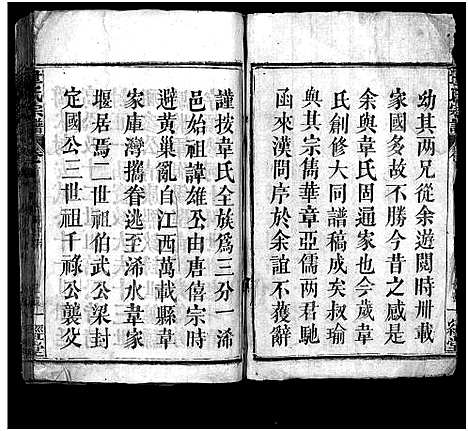 幼其兩兄從余遊閱時卅載
家國多故不勝今昔之感是
余與韋氏固通家也今歲韋
氏創修大同譜稿成矣叔瑜
與其宗儁華章亞儒兩君馳
函來漢問序於余誼不獲辭
謹按韋氏全族爲三分一浠
邑始祖諱雄公由唐僖宗時
避黃巢亂自江西萬載縣韋
家庫灣攜眷逃至浠水韋家
堰居焉二世祖伯武公梁封
定國公三世祖千祿公襲父
氏宗譜
一經堂
一經堂